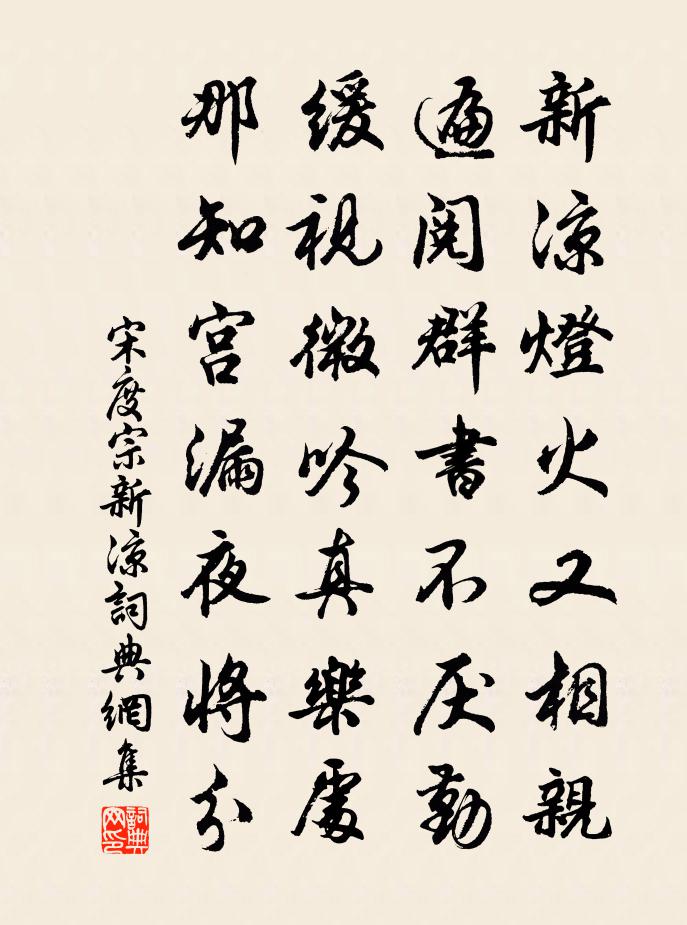 新涼燈火又相親
遍閱群書不厌勤
緩視微吟真樂處
那知宮漏夜將分
宋度宗新涼詞典網集
詞典网印